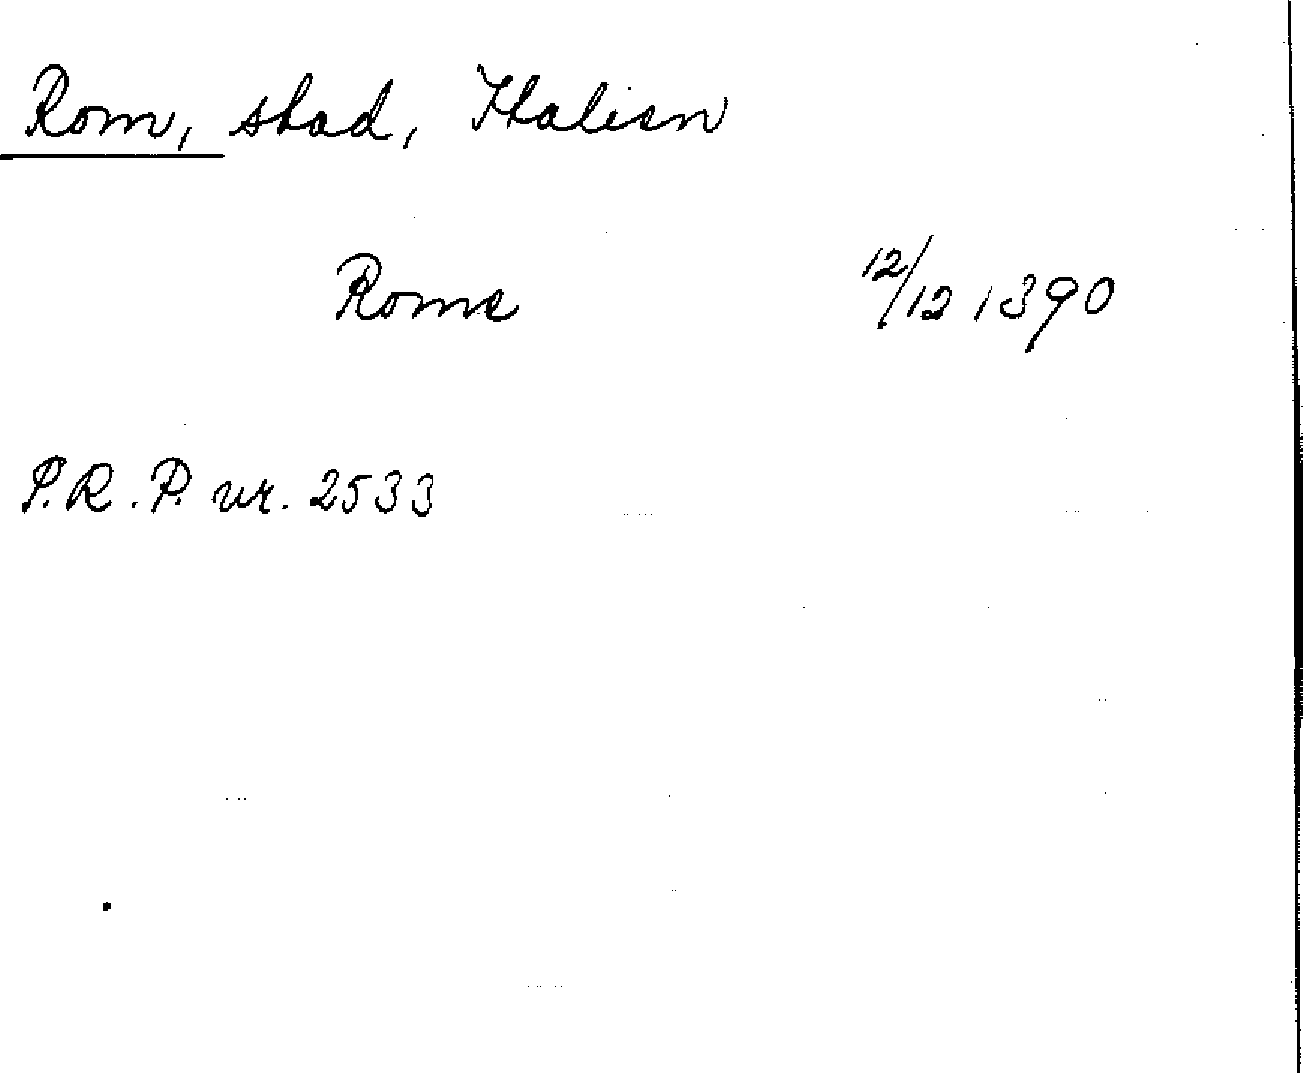 Rom, stad, Italien
Rome 12/12 1390
S.R.P. nr. 2533